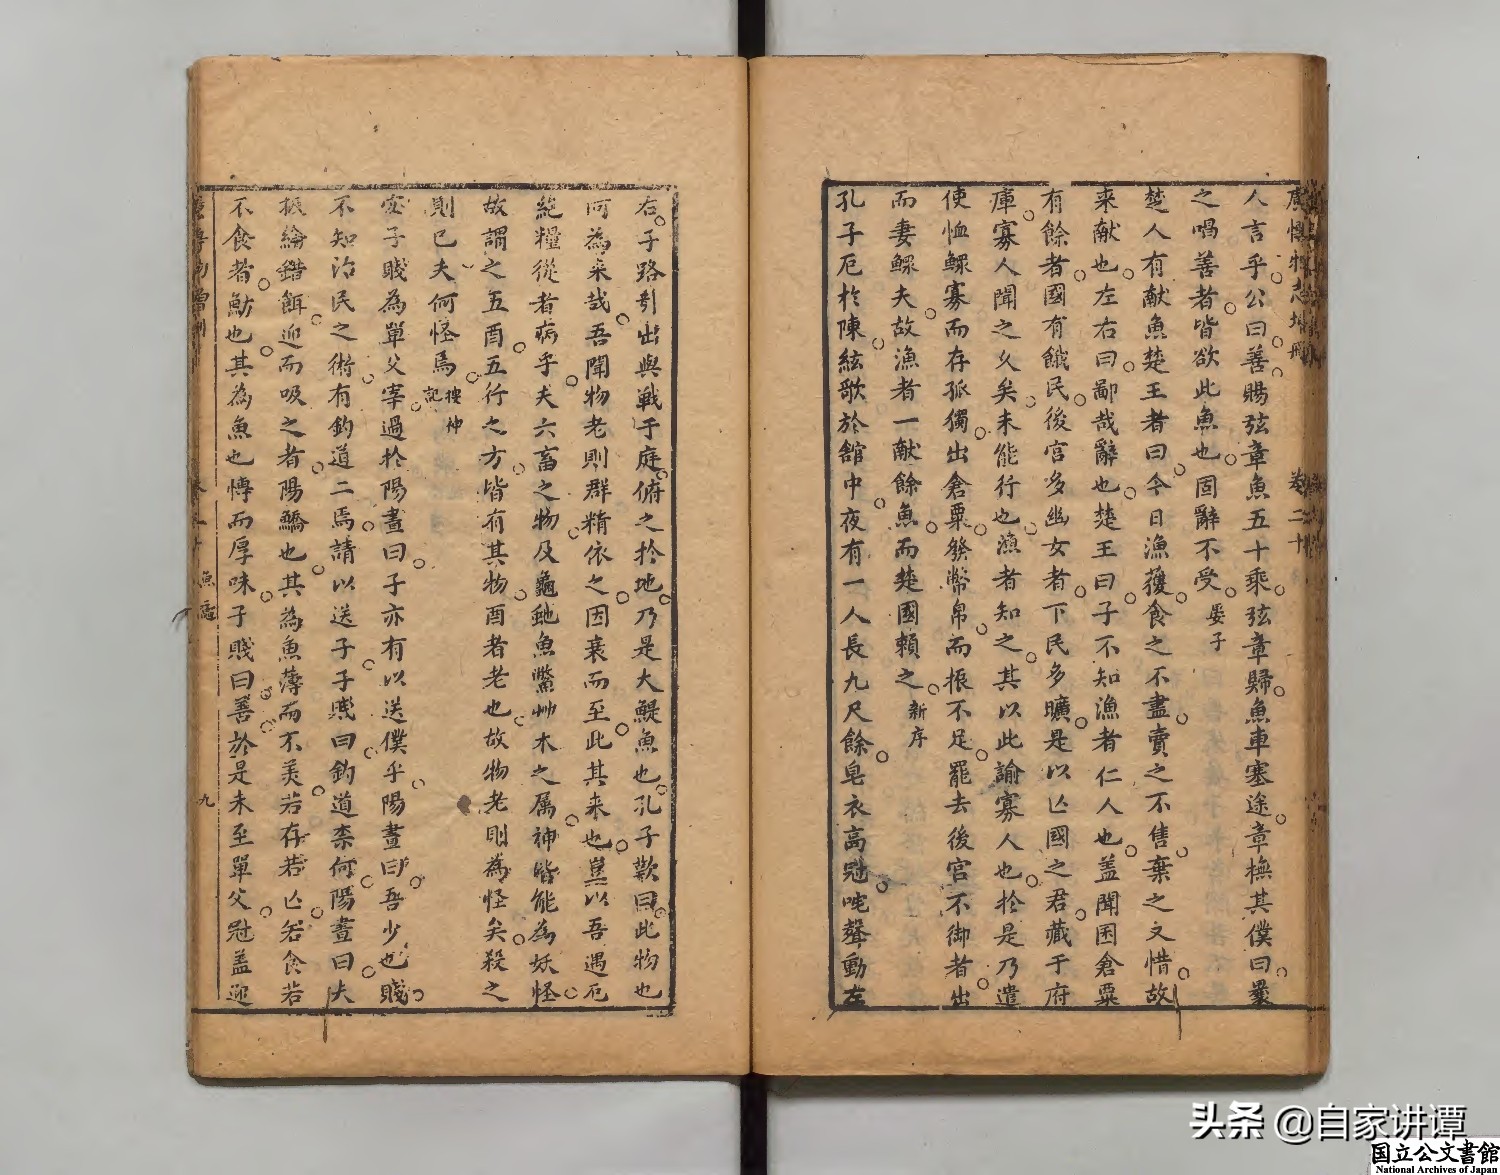 人言乎公曰善賜弦章魚五十乘弦章歸魚車塞途章撫其僕曰曩
之唱善者皆欲此魚也固辭不受晏子
楚人有献魚楚王者曰今日漁獲食之不盡賣之不售棄之又惜故
来献也左右曰鄙哉辭也楚王曰子不知漁者仁人也盖聞囷倉粟
有餘者國有餓民後宮多幽女者下民多曠是以亡國之君藏于府
庫寡人聞之久矣未能行也漁者知之其以此諭寡人也於是乃遣
使恤鰥寡而存孤獨出倉粟發幣帛而振不足罷去後宮不御者出
而妻鰥夫故漁者一献餘魚而楚國頼之新序
孔子厄於陳絃歌於舘中夜有一人長九尺餘皂衣高冠咤聲動左
右子路引出與戰于庭俯之於地乃是大鯷魚也孔子歎曰此物也
何為来哉吾聞物老則群精依之因衰而至此其来也豈以吾遇厄
絶糧從者病乎夫六畜之物及龜虵魚鱉艸木之属神皆能為妖怪
故謂之五酉五行之方皆有其物酉者老也故物老則為怪矣殺之
則已夫何怪焉搜神記
宓子賤為單父宰過於陽晝曰子亦有以送僕乎陽晝曰吾少也賤
不知治民之術有釣道二焉請以送子子賤曰釣道柰何陽晝曰夫
投綸錯餌迎而吸之者陽鱎也其為魚薄而不美若存若亡若食若
不食者魴也其為魚也博而厚味子賤曰善於是未至單父冠盖迎
卷二十
九
头条 @自家讲谭
国立公文書館
National Archives of Japan